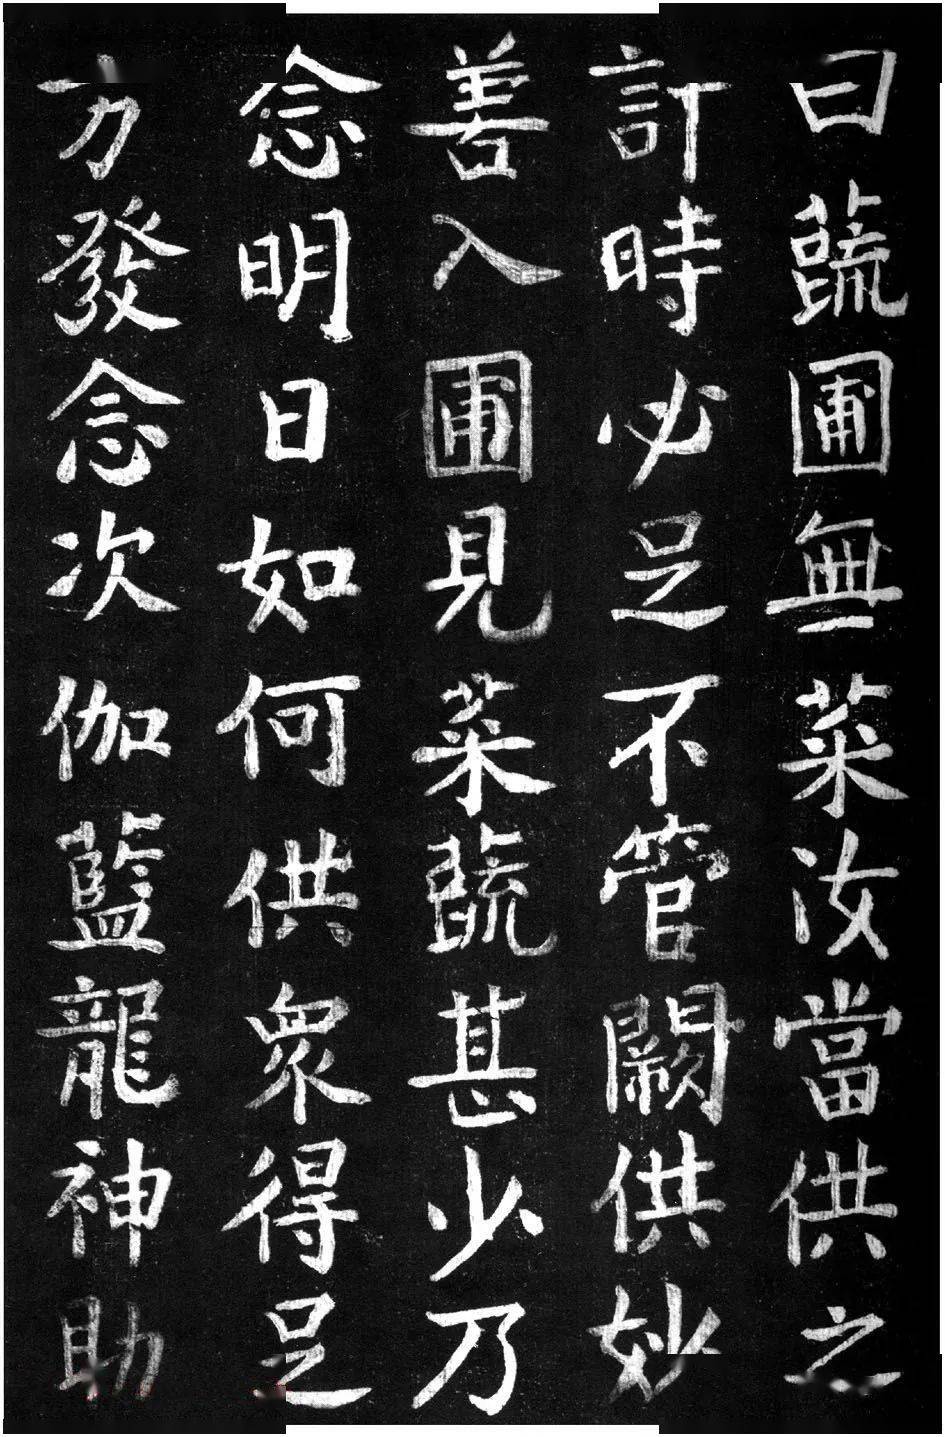 曰蔬圃無菜汝當供之
計時必足不管闕供妙
善入圃見菜蔬甚少乃
念明日如何供衆得足
方發念次伽藍龍神助